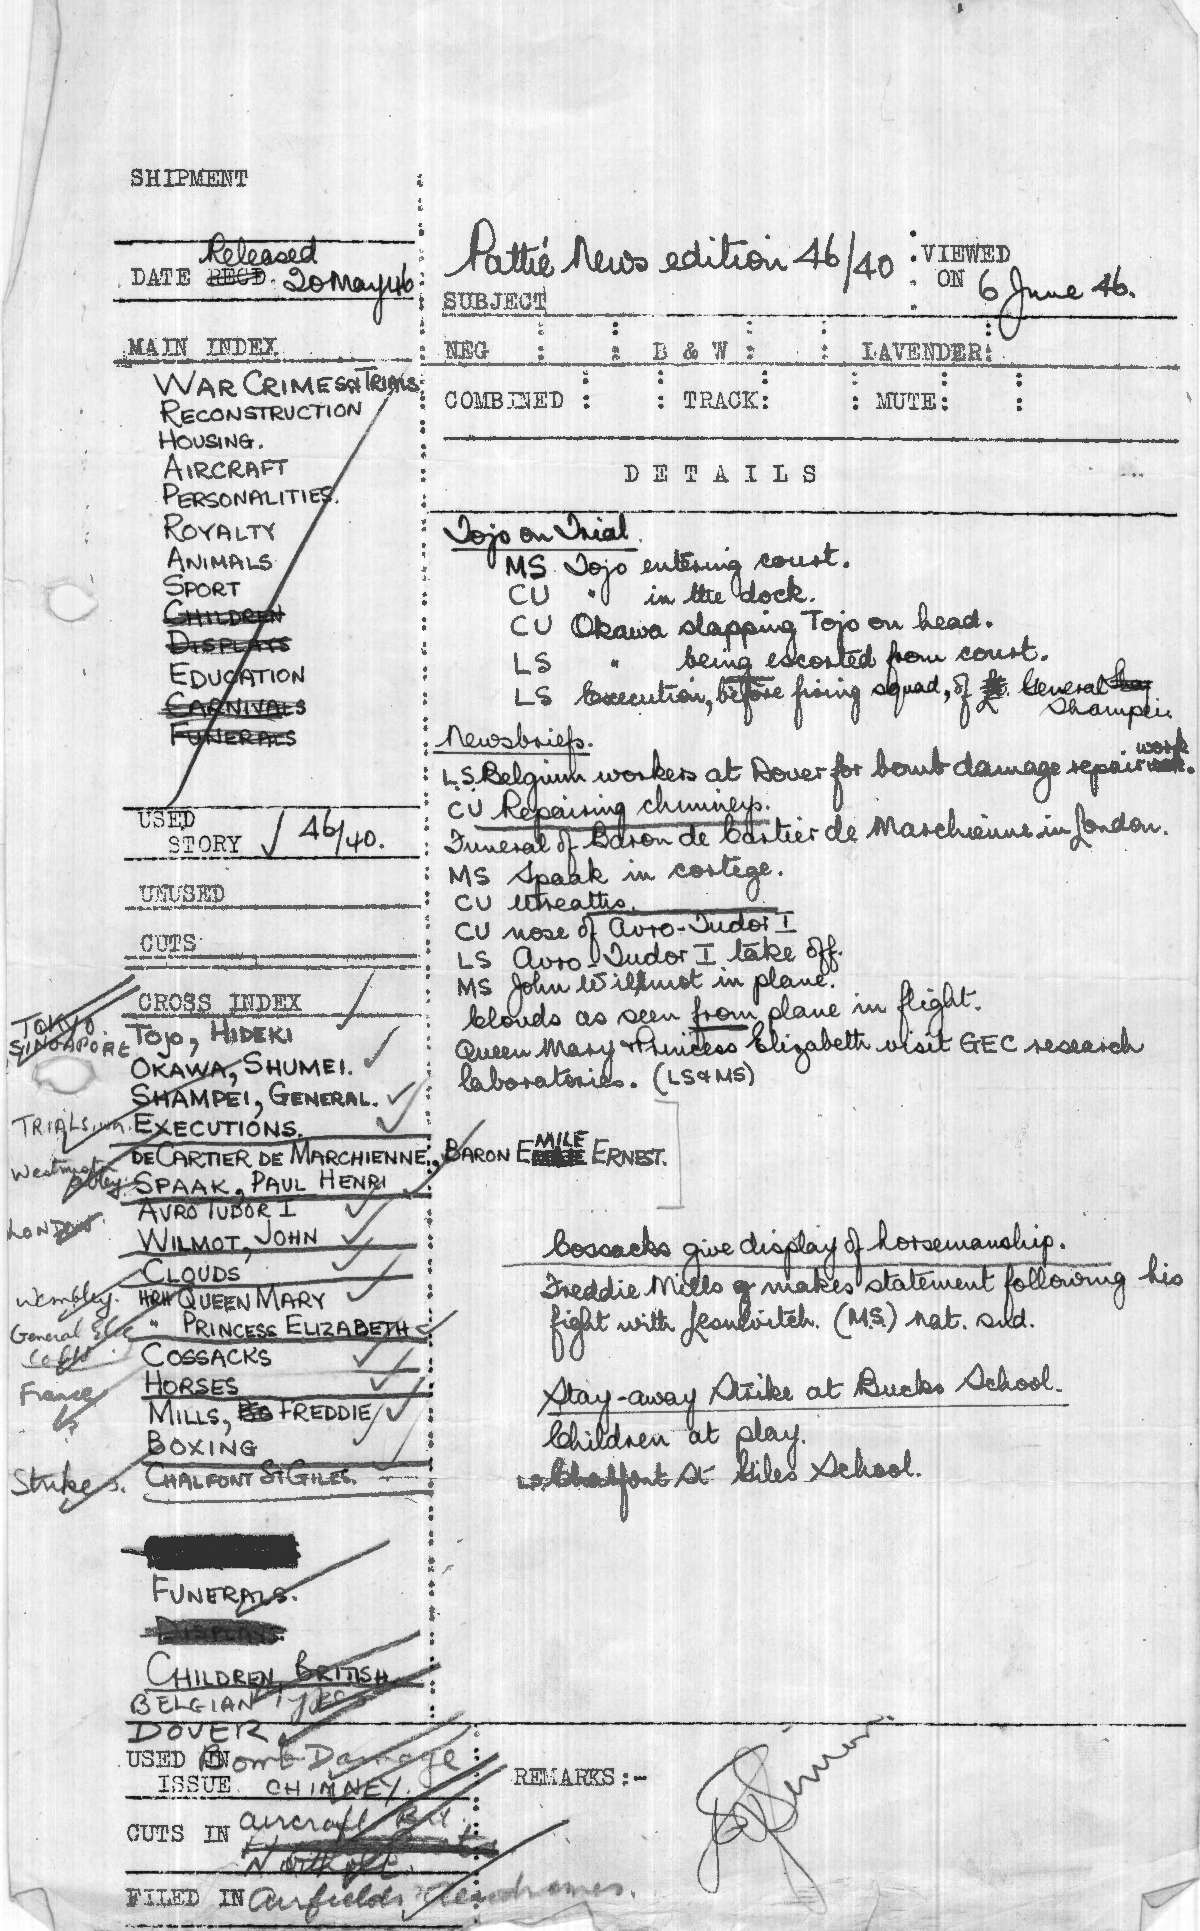 SHIPMENT
Released
DATE RECD. 20 May 46
Pathé News edition 46/40
SUBJECT
VIEWED
ON 6 June 46.
MAIN INDEX
NEG : : B & W : : LAVENDER:
COMBINED : : TRACK: : MUTE: :
WAR CRIMES & TRIALS
RECONSTRUCTION
HOUSING.
AIRCRAFT
PERSONALITIES.
ROYALTY
ANIMALS
SPORT
CHILDREN
DISPLAYS
EDUCATION
CARNIVALS
FUNERALS
USED
STORY √ 46/40.
UNUSED
CUTS
DETAILS
Tojo on Trial.
MS Tojo entering court.
CU " in the dock.
CU Okawa slapping Tojo on head.
LS " being escorted from court.
LS Execution, before firing squad, of General
Shampei.
Newsbriefs.
L.S. Belgium workers at Dover for bomb damage repair work.
CU Repairing chimneys.
Funeral of Baron de Cartier de Marchienne in London.
MS Spaak in cortege.
CU Wreaths.
CU nose of Avro-Tudor I
LS Avro-Tudor I take off.
MS John Wilmot in plane.
Clouds as seen from plane in flight.
Queen Mary & Princess Elizabeth visit GEC research
laboratories. (LS & MS)
CROSS INDEX
TOKYO.
SINGAPORE
TOJO, HIDEKI
OKAWA, SHUMEI.
SHAMPEI, GENERAL.
TRIALS, EXECUTIONS.
DE CARTIER DE MARCHIENNE, BARON EMILE ERNEST.
Westminster Abbey. SPAAK, PAUL HENRI
AVRO TUDOR I
LONDON. WILMOT, JOHN
CLOUDS
Wembley. HRH QUEEN MARY
General Elec " PRINCESS ELIZABETH
COSSACKS
France HORSES
MILLS, FREDDIE
BOXING
Strikes. CHALFONT ST GILES.
Cossacks give display of horsemanship.
Freddie Mills makes statement following his
fight with Lesnevitch. (M.S.) nat. snd.
Stay-away Strike at Bucks School.
Children at play.
LS. Chalfont St Giles School.
FUNERALS.
DISPLAYS.
CHILDREN, BRITISH
BELGIAN Types
DOVER
USED IN Bomb Damage
ISSUE CHIMNEY.
CUTS IN aircraft Brit.
Northolt.
FILED IN Airfields & Aerodromes.
REMARKS:-